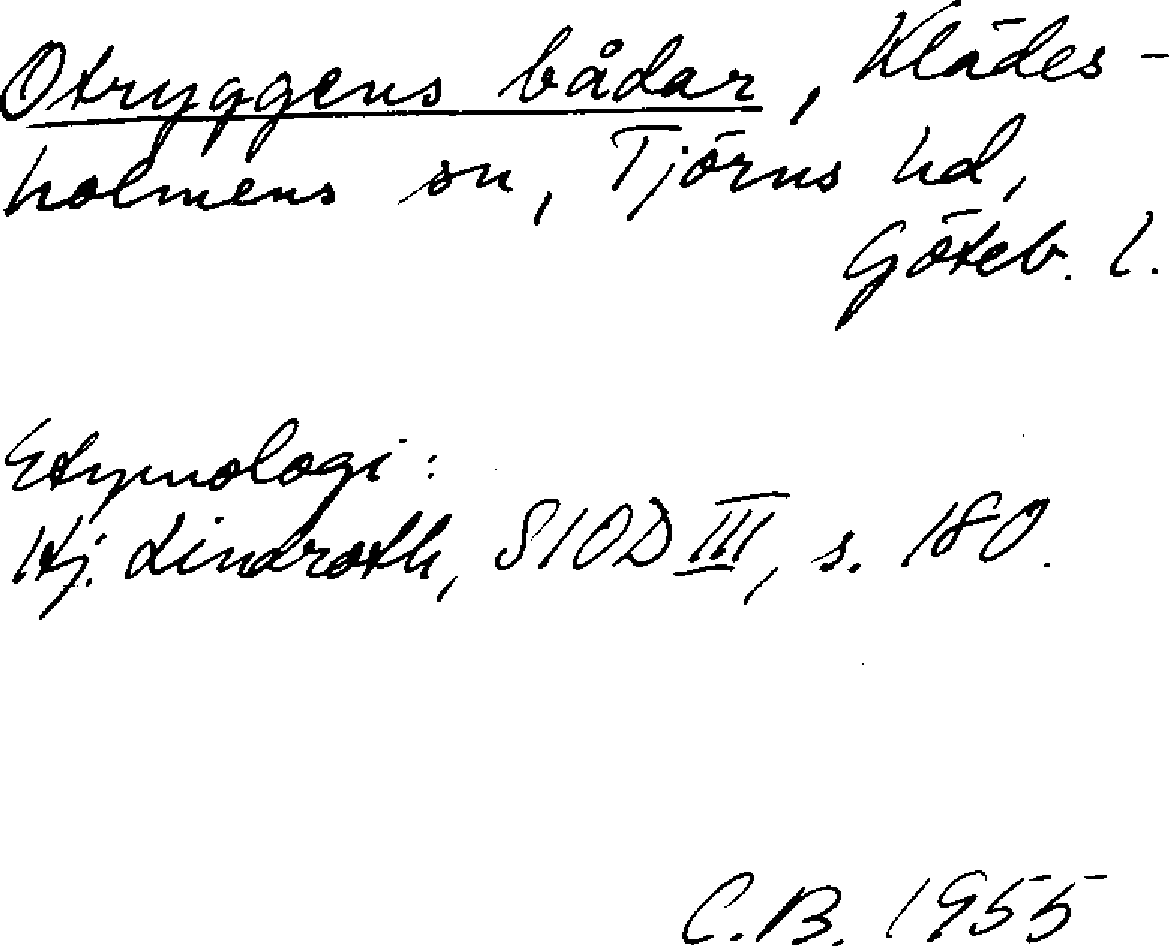 Otryggens bådar, Klädes-
holmens sn, Tjörns hd,
Göteb. l.
Etymologi:
Hj. Lindroth, SIOD III, s. 180.
C.B. 1955